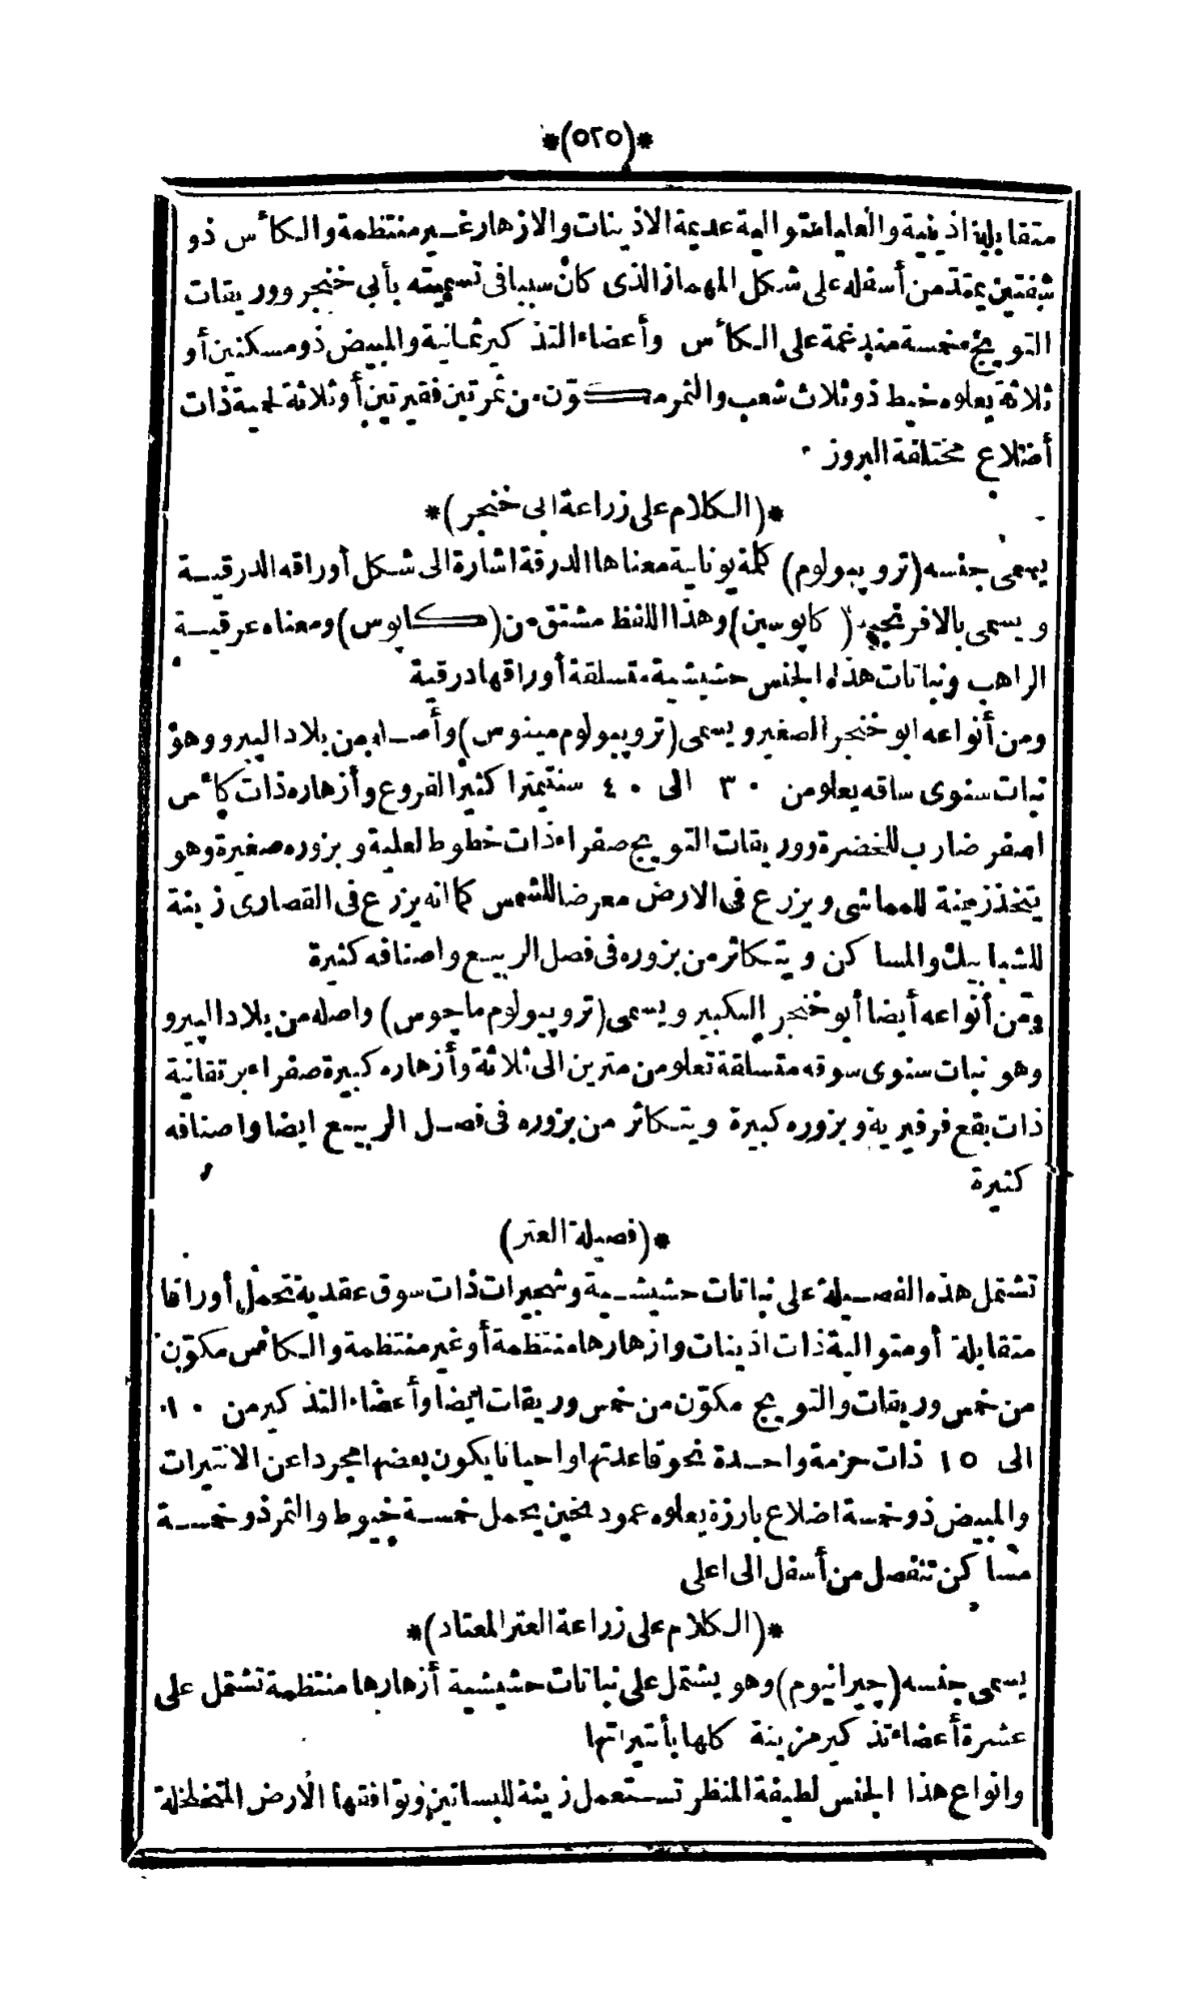 *(٥٢٥)*
متقابلة اذينية والعليا متوالية عديمة الاذينات والازهار غير منتظمة والكأس ذو
شفتين يمتد من أسفله على شكل المهماز الذى كان سببا فى تسميته بأبى خنجر ووريقات
التويج خمسة مندغمة على الكأس وأعضاء التذكير ثمانية والمبيض ذو مسكنين أو
ثلاثة يعلوه خيط ذو ثلاث شعب والثمر مكوّن من ثمرتين فقيرتين أو ثلاثة لحمية ذات
أضلاع مختلفة البروز ٠
*(الكلام على زراعة ابى خنجر)*
يسمى جنسه (تروپيولوم) كلمة يونانية معناها الدرقة اشارة الى شكل أوراقه الدرقية
ويسمى بالافرنجية (كاپوسين) وهذا اللفظ مشتق من (كاپوس) ومعناه عرقية
الراهب ونباتات هذا الجنس حشيشية متسلقة أوراقها درقية
ومن أنواعه ابو خنجر الصغير ويسمى (تروپيولوم مينوس) وأصله من بلاد الپيرو وهو
نبات سنوى ساقه يعلو من ٣٠ الى ٤٠ سنتيمترا كثير الفروع وأزهاره ذات كأس
اصفر ضارب للخضرة ووريقات التويج صفراء ذات خطوط لعلية وبزوره صغيرة وهو
يتخذ زينة للمماشى ويزرع فى الارض معرضا للشمس كما انه يزرع فى القصارى زينة
للشبابيك والمساكن ويتكاثر من بزوره فى فصل الربيع واصنافه كثيرة
ومن أنواعه أيضا أبو خنجر الكبير ويسمى (تروپيولوم ماچوس) واصله من بلاد الپيرو
وهو نبات سنوى سوقه متسلقة تعلو من مترين الى ثلاثة وأزهاره كبيرة صفراء برتقانية
ذات بقع فرفيرية وبزوره كبيرة ويتكاثر من بزوره فى فصل الربيع ايضا واصنافه
كثيرة
*(فصيلة العتر)
تشتمل هذه الفصيلة على نباتات حشيشية وشجيرات ذات سوق عقدية تحمل أوراقا
متقابلة أو متوالية ذات اذينات وازهارها منتظمة أو غير منتظمة والكأس مكوّن
من خمس وريقات والتويج مكوّن من خمس وريقات ايضا وأعضاء التذكير من ١٠
الى ١٥ ذات حزمة واحدة نحو قاعدتها واحيانا يكون بعضها مجردا عن الانتيرات
والمبيض ذو خمسة اضلاع بارزة يعلوه عمود ثخين يحمل خمسة خيوط والثمر ذو خمسة
مساكن تنفصل من أسفل الى اعلى
*(الكلام على زراعة العتر المعتاد)*
يسمى جنسه (چيرانيوم) وهو يشتمل على نباتات حشيشية أزهارها منتظمة تشتمل على
عشرة أعضاء تذكير مزينة كلها بأنتيراتها
وانواع هذا الجنس لطيفة المنظر تستعمل زينة للبساتين وتوافقها الارض المتخلخلة